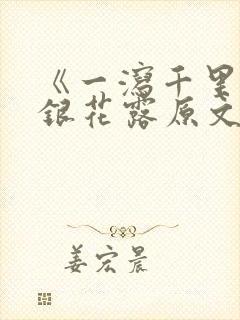 《一泻千里
银花露原文
姜宏晨